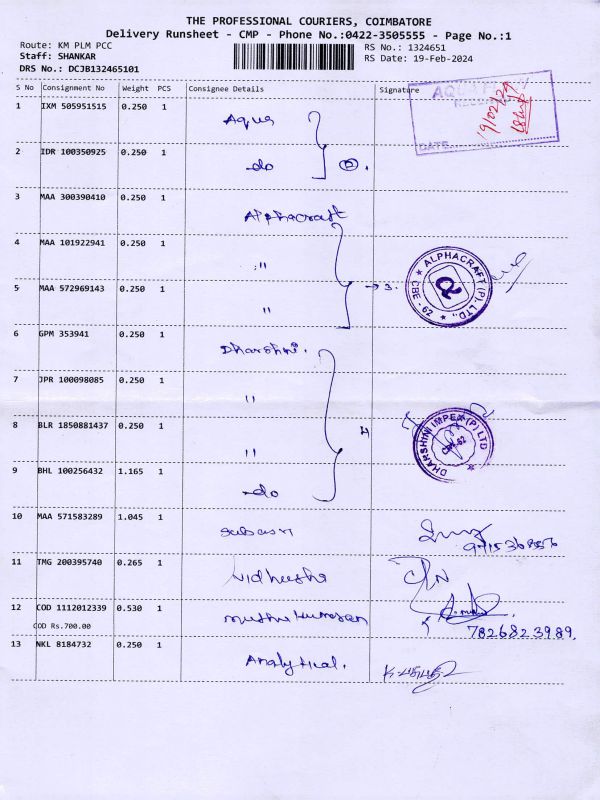 THE PROFESSIONAL COURIERS, COIMBATORE
Delivery Runsheet - CMP - Phone No.:0422-3505555 - Page No.:1
Route: KM PLM PCC
RS No.: 1324651
Staff: SHANKAR
RS Date: 19-Feb-2024
DRS No.: DCJB132465101
S No Consignment No Weight PCS Consignee Details Signature
1 IXM 505951515 0.250 1 Aqua
19/02/24
DATE
2 IDR 100350925 0.250 1 -do 2.
3 MAA 300390410 0.250 1 Alphacraft
4 MAA 101922941 0.250 1 "
5 MAA 572969143 0.250 1 " → 3.
ALPHACRAFT (P). LTD., CBE - 62
6 GPM 353941 0.250 1 Dharshni.
7 JPR 100098085 0.250 1 "
8 BLR 1850881437 0.250 1 " 4
DHARSHINI IMPEX (P) LTD
9 BHL 100256432 1.165 1 -do
10 MAA 571583289 1.045 1
11 TMG 200395740 0.265 1
12 COD 1112012339 0.530 1 Muthu Kumaran
COD Rs.700.00
7826823989.
13 NKL 8184732 0.250 1 Analytical.